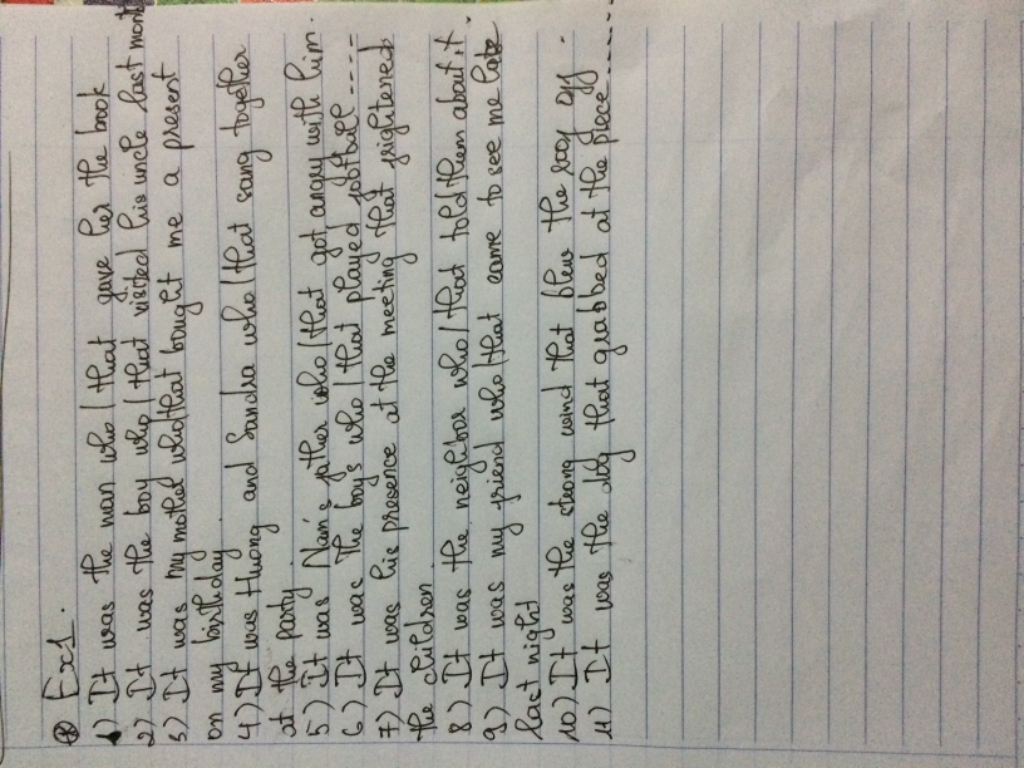 Ex1.
1) It was the man who / that gave her the book
2) It was the boy who / that visited his uncle last month
3) It was my mother who/that bought me a present
on my birthday
4) It was thong and Sandra who / that sang together
at the party
5) It was Nam's father who / that got angry with him.
6) It was the boys who / that played softball ----
7) It was his presence at the meeting that frightened
the children.
8) It was the neighbor who / that told them about it.
9) It was my friend who / that came to see me late
last night
10) It was the strong wind that blew the roof off.
11) It was the dog that grabbed at the piece......